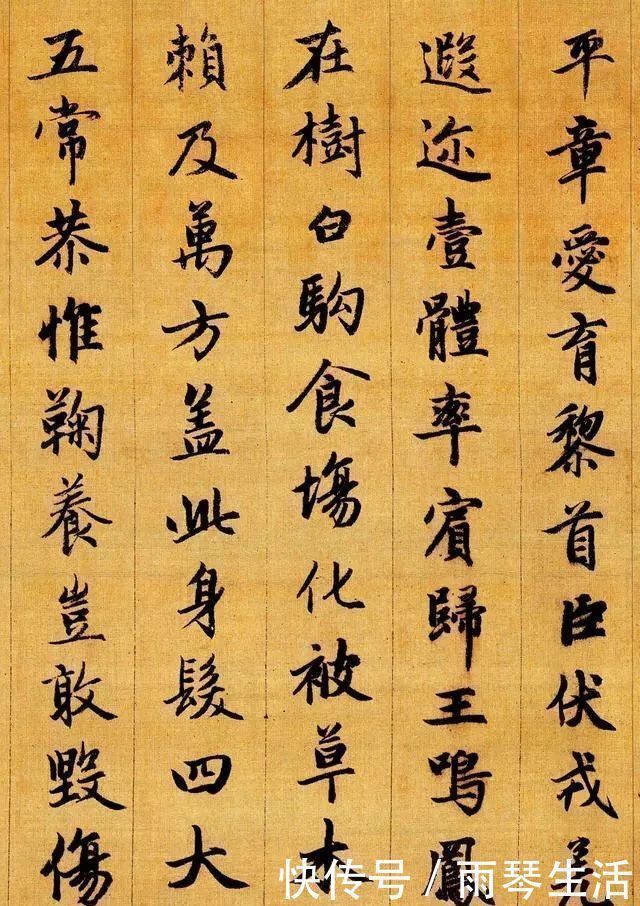 平章愛育黎首臣伏戎羌
遐迩壹體率賓歸王鳴鳳
在樹白駒食塲化被草木
賴及萬方盖此身髮四大
五常恭惟鞠養豈敢毀傷
快传号 / 雨琴生活